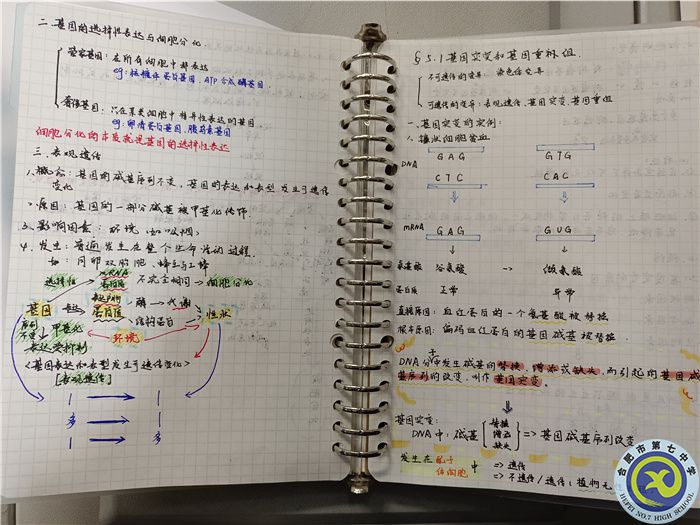 二.基因的选择性表达与细胞分化.
管家基因: 在所有细胞中都表达
eg: 核糖体蛋白基因, ATP合成酶基因.
奢侈基因: 只在某类细胞中特异性表达的基因
eg: 卵清蛋白基因, 胰岛素基因
细胞分化的本质就是基因的选择性表达
三. 表观遗传
1.概念: 基因的碱基序列不变, 基因的表达和表型发生可遗传
变化
2.原因: 基因的一部分碱基被甲基化修饰.
3.影响因素: 环境 (如吸烟)
4.发生: 普遍发生在整个生命活动过程.
如: 同卵双胞胎 蜂王与工蜂
选择性 mRNA 蛋白质 不完全相同 → 细胞分化
基因 表达 表达产物 蛋白质 酶 → 代谢 性状
结构蛋白
序列不变 甲基化 环境
表达受抑制
<基因表达和表型发生可遗传变化>
[表观遗传]
1 → 1
多 → 1
1 → 多
§5.1 基因突变和基因重组.
不可遗传的变异:
可遗传的变异: 表观遗传, 基因突变, 基因重组
染色体变异
一.基因突变的实例:
1.镰状细胞贫血
DNA GAG GTG
CTC CAC
mRNA GAG GUG
氨基酸 谷氨酸 → 缬氨酸
蛋白质 正常 异常
直接原因: 血红蛋白的一个氨基酸被替换
根本原因: 编码血红蛋白的基因碱基被替换.
DNA分子中发生碱基的替换, 增添或缺失, 而引起的基因碱
基序列的改变, 叫作基因突变.
基因突变:
DNA中: 碱基 替换 增添 缺失 => 基因碱基序列改变
发生在 配子 中 => 遗传
体细胞 => 不遗传/遗传(植物无
合肥市第七中学
HEFEI NO.7 HIGH SCHOOL